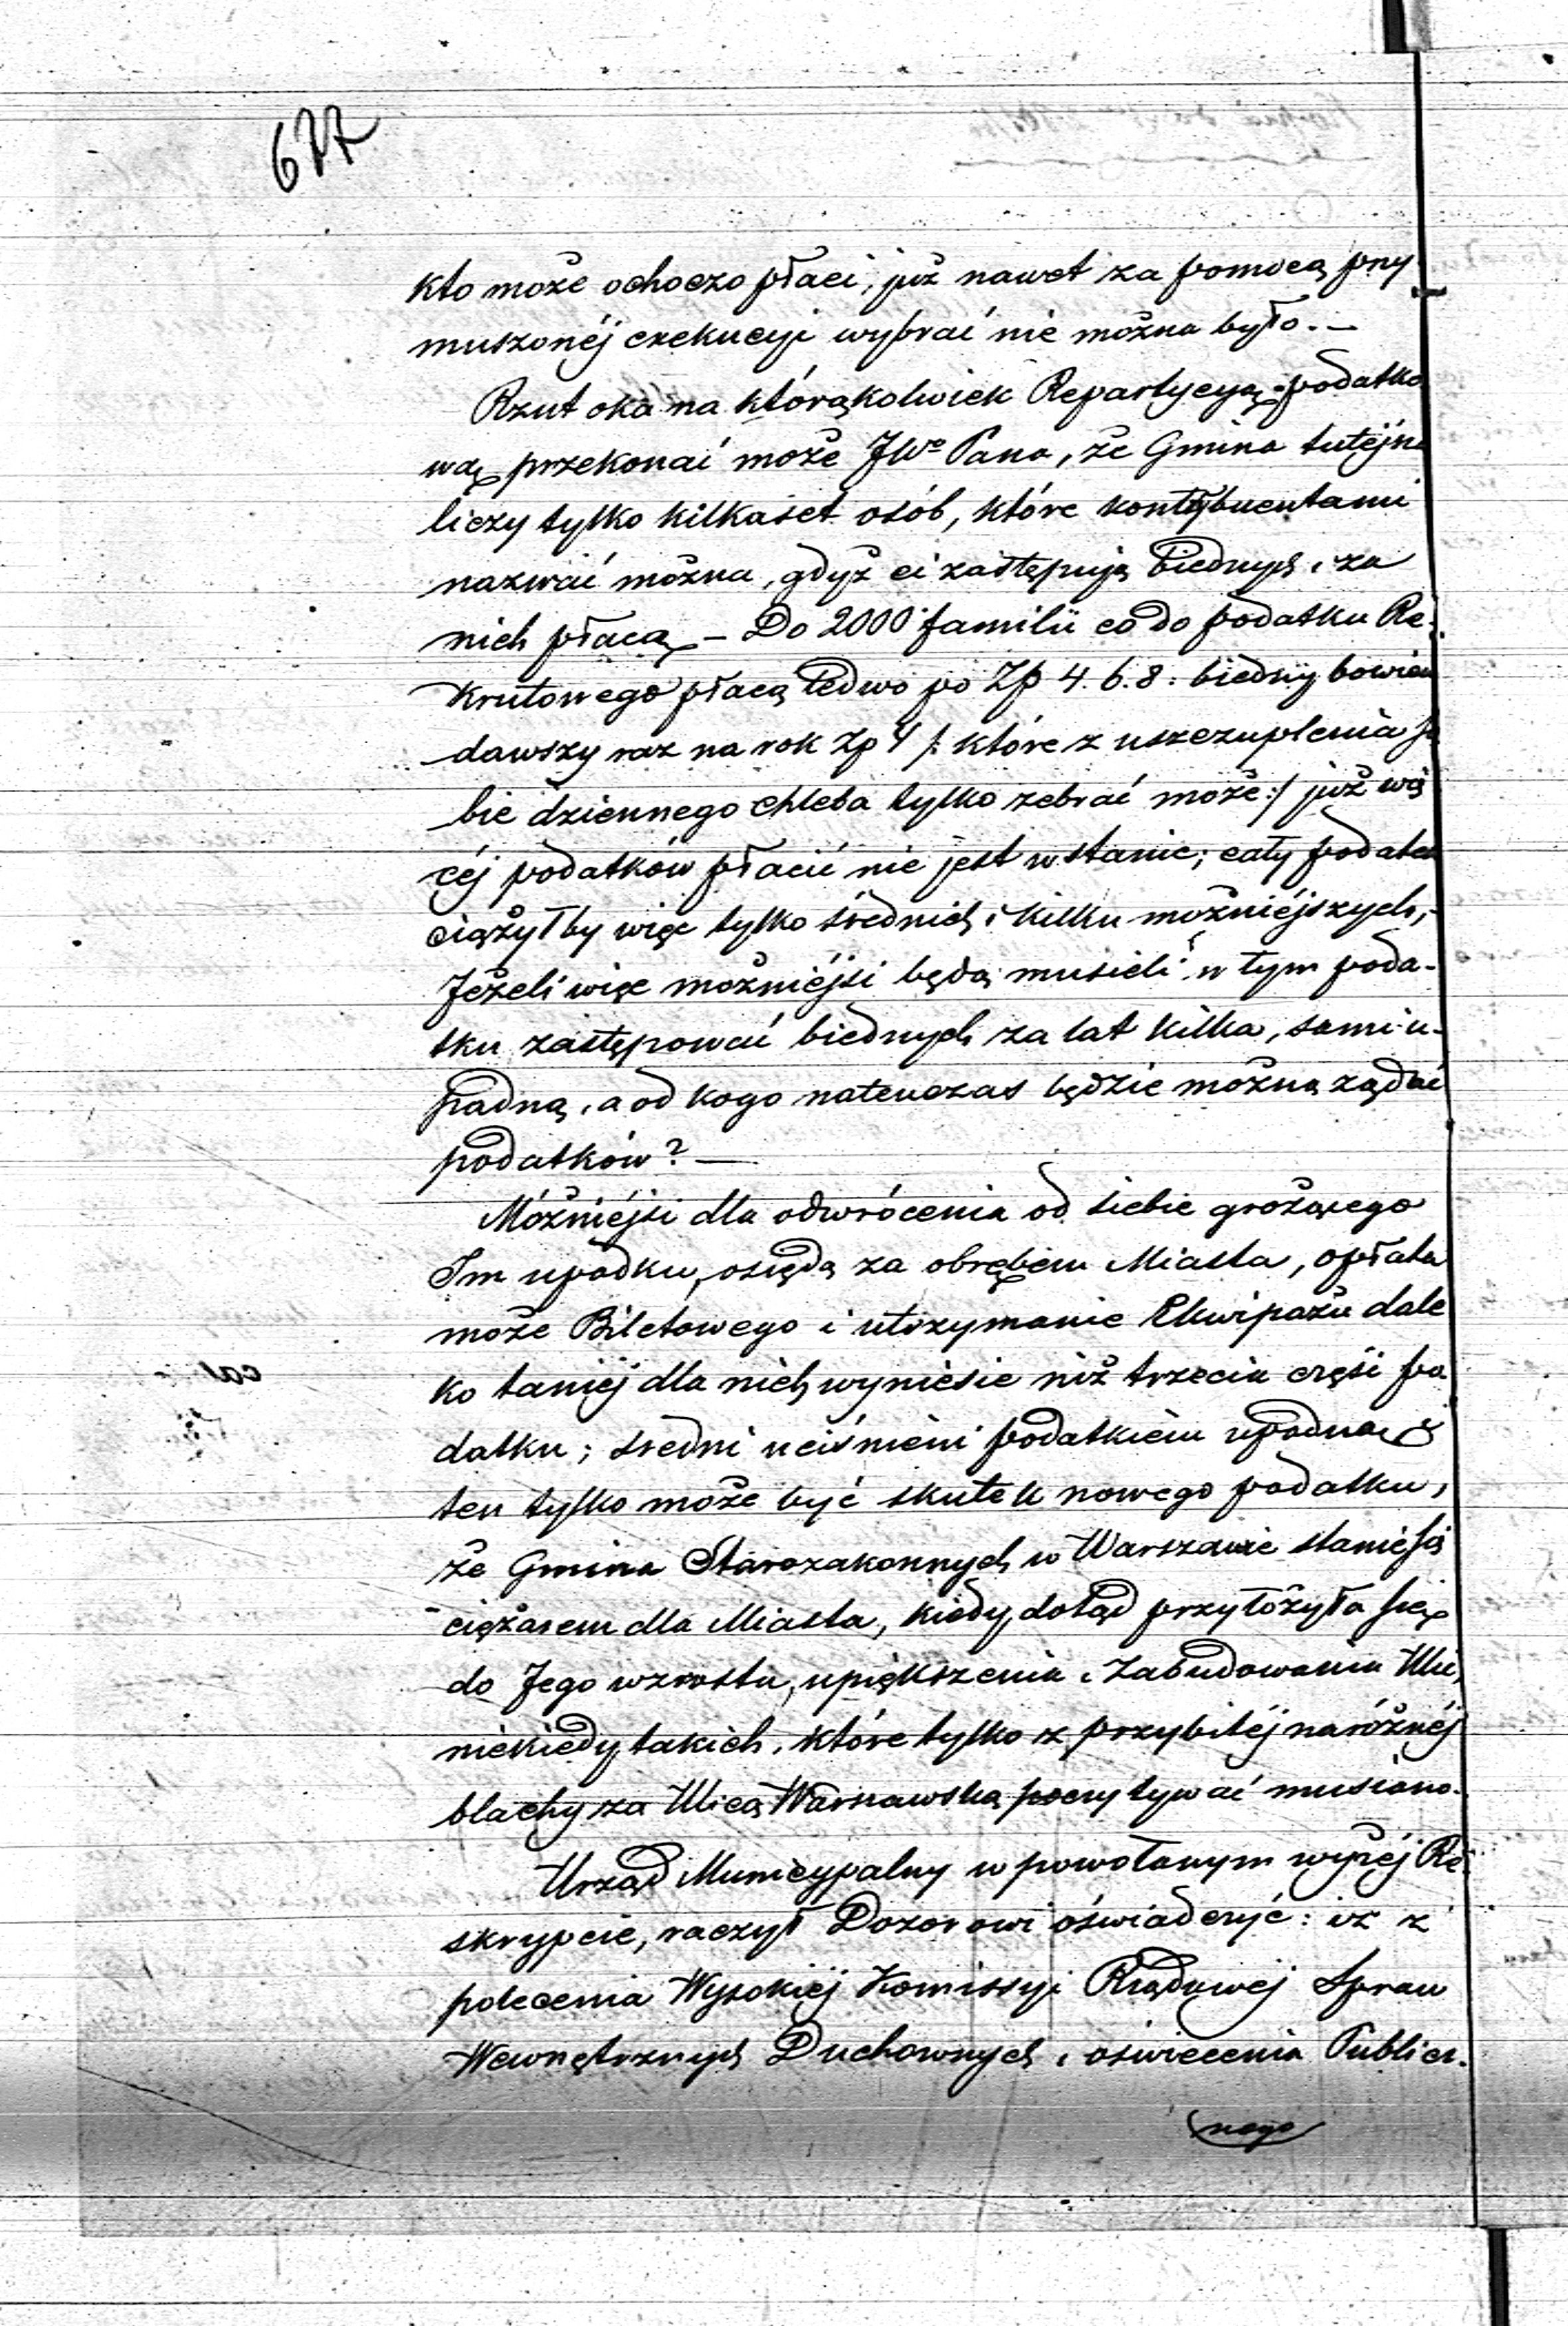 677
kto może ochoczo płaci, już nawet za pomocą przy
muszonéj exekucyi wybrać nie można było. —
Rzut oka na którąkolwiek Repartycyą podatko
wą przekonać może JWo Pana, że Gmina tutéjna
liczy tylko kilkaset osób, które kontrybuentami
nazwać można, gdyż ci zastępują biednych i za
nich płacą. — Do 2000 familii co do podatku Re-
krutowego płacą ledwo po Zp 4. 6. 8: biedny bowiem
dawszy raz na rok zp 4 /: które z uszczuplenia so
bie dziennego chleba tylko zebrać może :/ już wię
céj podatków płacić nie jest wstanie; cały podatek
ciążyłby więc tylko średnich i kilku możniéjszych, -
Jeżeli więc możniéjsi będą musieli w tym poda-
tku zastępować biednych za lat kilka, sami u-
padną, a od kogo natenczas będzie można żądać
podatków? —
Móżniéjsi dla odwrócenia od siebie grożącego
Im upadku, osiędą za obrębem Miasta, opłata
może Biletowego i utrzymanie Ekwipażu dale
ko taniéj dla nich wyniesie niż trzecia część po
datku; średni uciśnieni podatkiem upadną &
ten tylko może być skutek nowego podatku,
że Gmina Starozakonnych w Warszawie stanie się
ciężarem dla Miasta, kiedy dotąd przyłożyła się
do Jego wzrostu, upiękrzenia i zabudowania Ulic,
niekiedy takich, które tylko z przybitéj naróżnéj
blachy za Ulicą Warszawską poczytywać musiano.
Urząd Municypalny w powołanym wyżéj Re-
skrypcie, raczył Dozorowi oświadczyć: iż z
polecenia Wysokiéj Komissyi Rządowéj Spraw
Wewnętrznych Duchownych i oświecenia Publicz.
nego